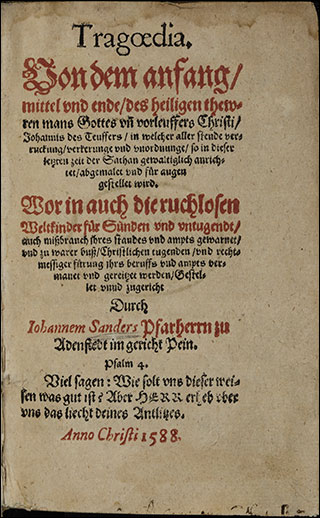 Tragœdia.
Von dem anfang/
mittel vnd ende/des heiligen thew-
ren mans Gottes vñ vorleuffers Christi/
Johannis des Teuffers/ in welcher aller stende ver-
ruckung/verkerunge vnd vnordnunge/ so in dieser
letzten zeit der Sathan gewaltiglich anrich-
tet/abgemalet vnd für augen
gestellet wird.
Worin auch die ruchlosen
Weltkinder für Sünden vnd vntugendt/
auch mißbrauch jhres standes vnd ampts gewarnet/
vnd zu warer buß/Christlichen tugenden /vnd recht-
messiger fürung jhrs beruffs vnd ampts ver-
manet vnd gereitzet werden/Gestel-
let vnnd zugericht
Durch
Iohannem Sanders Pfarherrn zu
Adenstedt im gericht Pein.
Psalm 4.
Viel sagen: Wie solt vns dieser wei-
sen was gut ist? Aber HERR erheb vber
vns das liecht deines Antlitzes.
Anno Christi 1588.